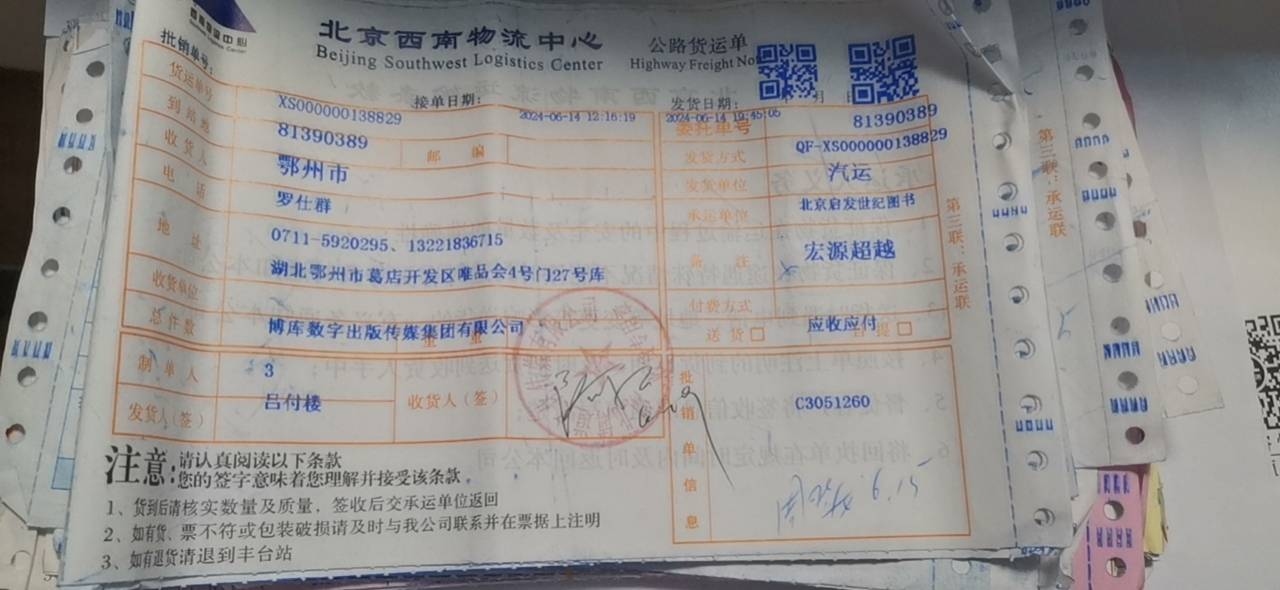 北京西南物流中心
公路货运单
Beijing Southwest Logistics Center
Highway Freight No
批销单号：
接单日期：
发货日期：
年 月 日
货运单号
XS000000138829
2024-06-14 12:16:19
2024-06-14 19:45:05
委托单号
81390389
到站地
81390389
邮 编
发货方式
QF-XS000000138829
收货人
鄂州市
发货单位
汽运
电 话
罗仕群
承运单位
北京启发世纪图书
地 址
0711-5920295、13221836715
备 注
宏源超越
湖北鄂州市葛店开发区唯品会4号门27号库
收货单位
付费方式
总件数
博库数字出版传媒集团有限公司
重 量
送 货 □
应收应付
自 提 □
制 单 人
3
收货人（签）
批销单信息
C3051260
发货人（签）
吕付楼
第三联：承运联
第三联：承运联
注意：
请认真阅读以下条款
您的签字意味着您理解并接受该条款
1、货到后请核实数量及质量，签收后交承运单位返回
2、如有货、票不符或包装破损请及时与我公司联系并在票据上注明
3、如有退货请退到丰台站